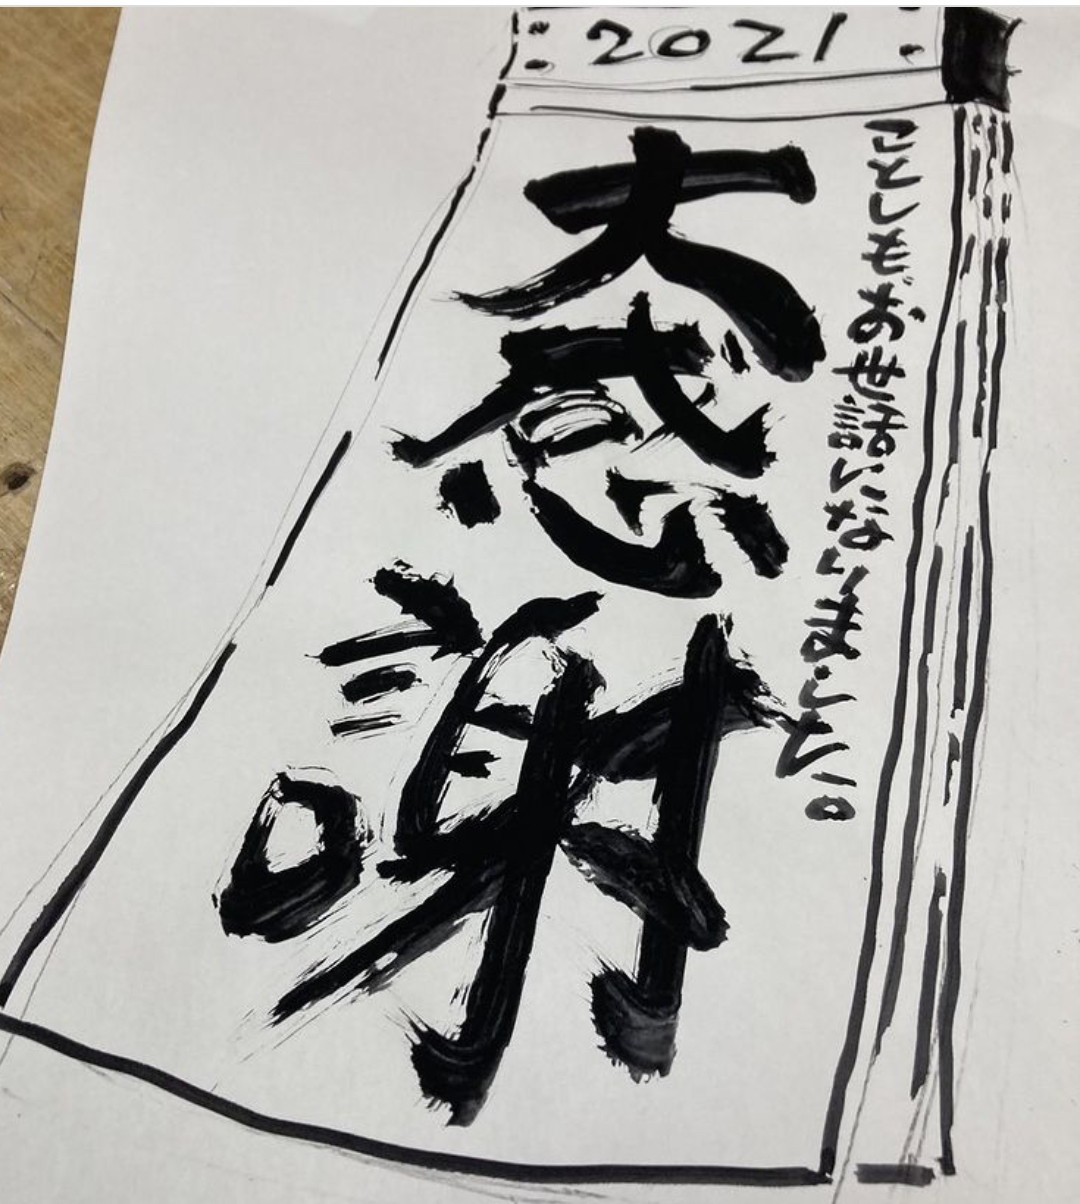 2021
ことしもお世話になりました。
大感謝